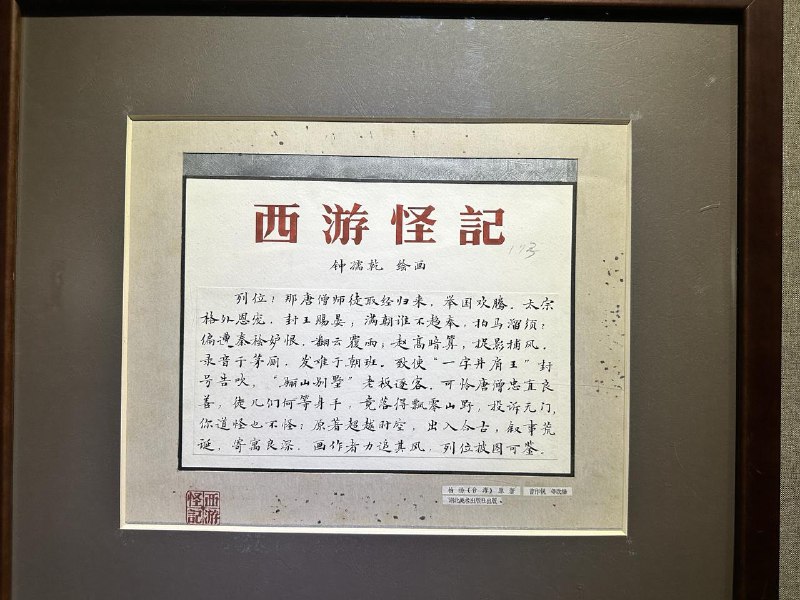 西游怪記
钟孺乾 绘画
列位：那唐僧师徒取经归来，举国欢腾。太宗
格外恩宠，封王赐宴；满朝谁不趋奉，拍马溜须；
偏遭秦桧妒恨，翻云覆雨；赵高暗算，捉影捕风，
录音于茅厕，发难于朝班。致使“一字并肩王”封
号告吹，“骊山别墅”老板逐客。可怜唐僧忠直良
善，徒儿们何等身手，竟落得飘零山野，投诉无门，
你道怪也不怪：原著超越时空，出入今古，叙事荒
诞，寄寓良深。画作者力追其风，列位披图可鉴。
原著
湖北美术出版社出版
西游
怪記